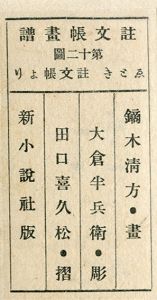 註文帳畫譜
第十二圖
ゑときは註文帳より
鏑木淸方●畫
大倉半兵衞●彫
田口喜久松●摺
新小說社版